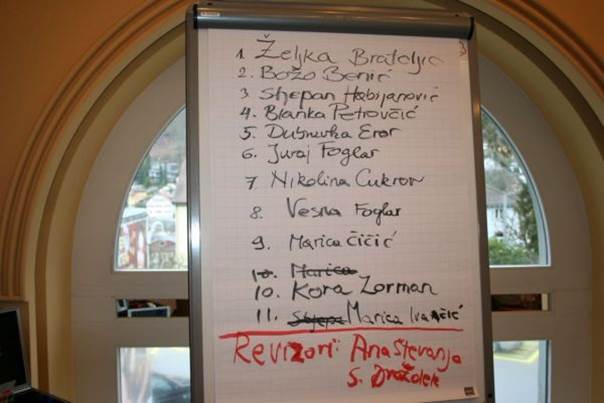 1. Željka Bratoljić
2. Božo Benić
3 Stjepan Habijanović
4. Blanka Petrovčić
5. Dubravka Eror
6. Juraj Foglar
7. Nikolina Cukrov
8. Vesna Foglar
9. Marica Čičić
10. Marica
10. Kora Zorman
11. Stjepa Marica Ivančić
Revizori: Ana Stevanja
S. Dražolek